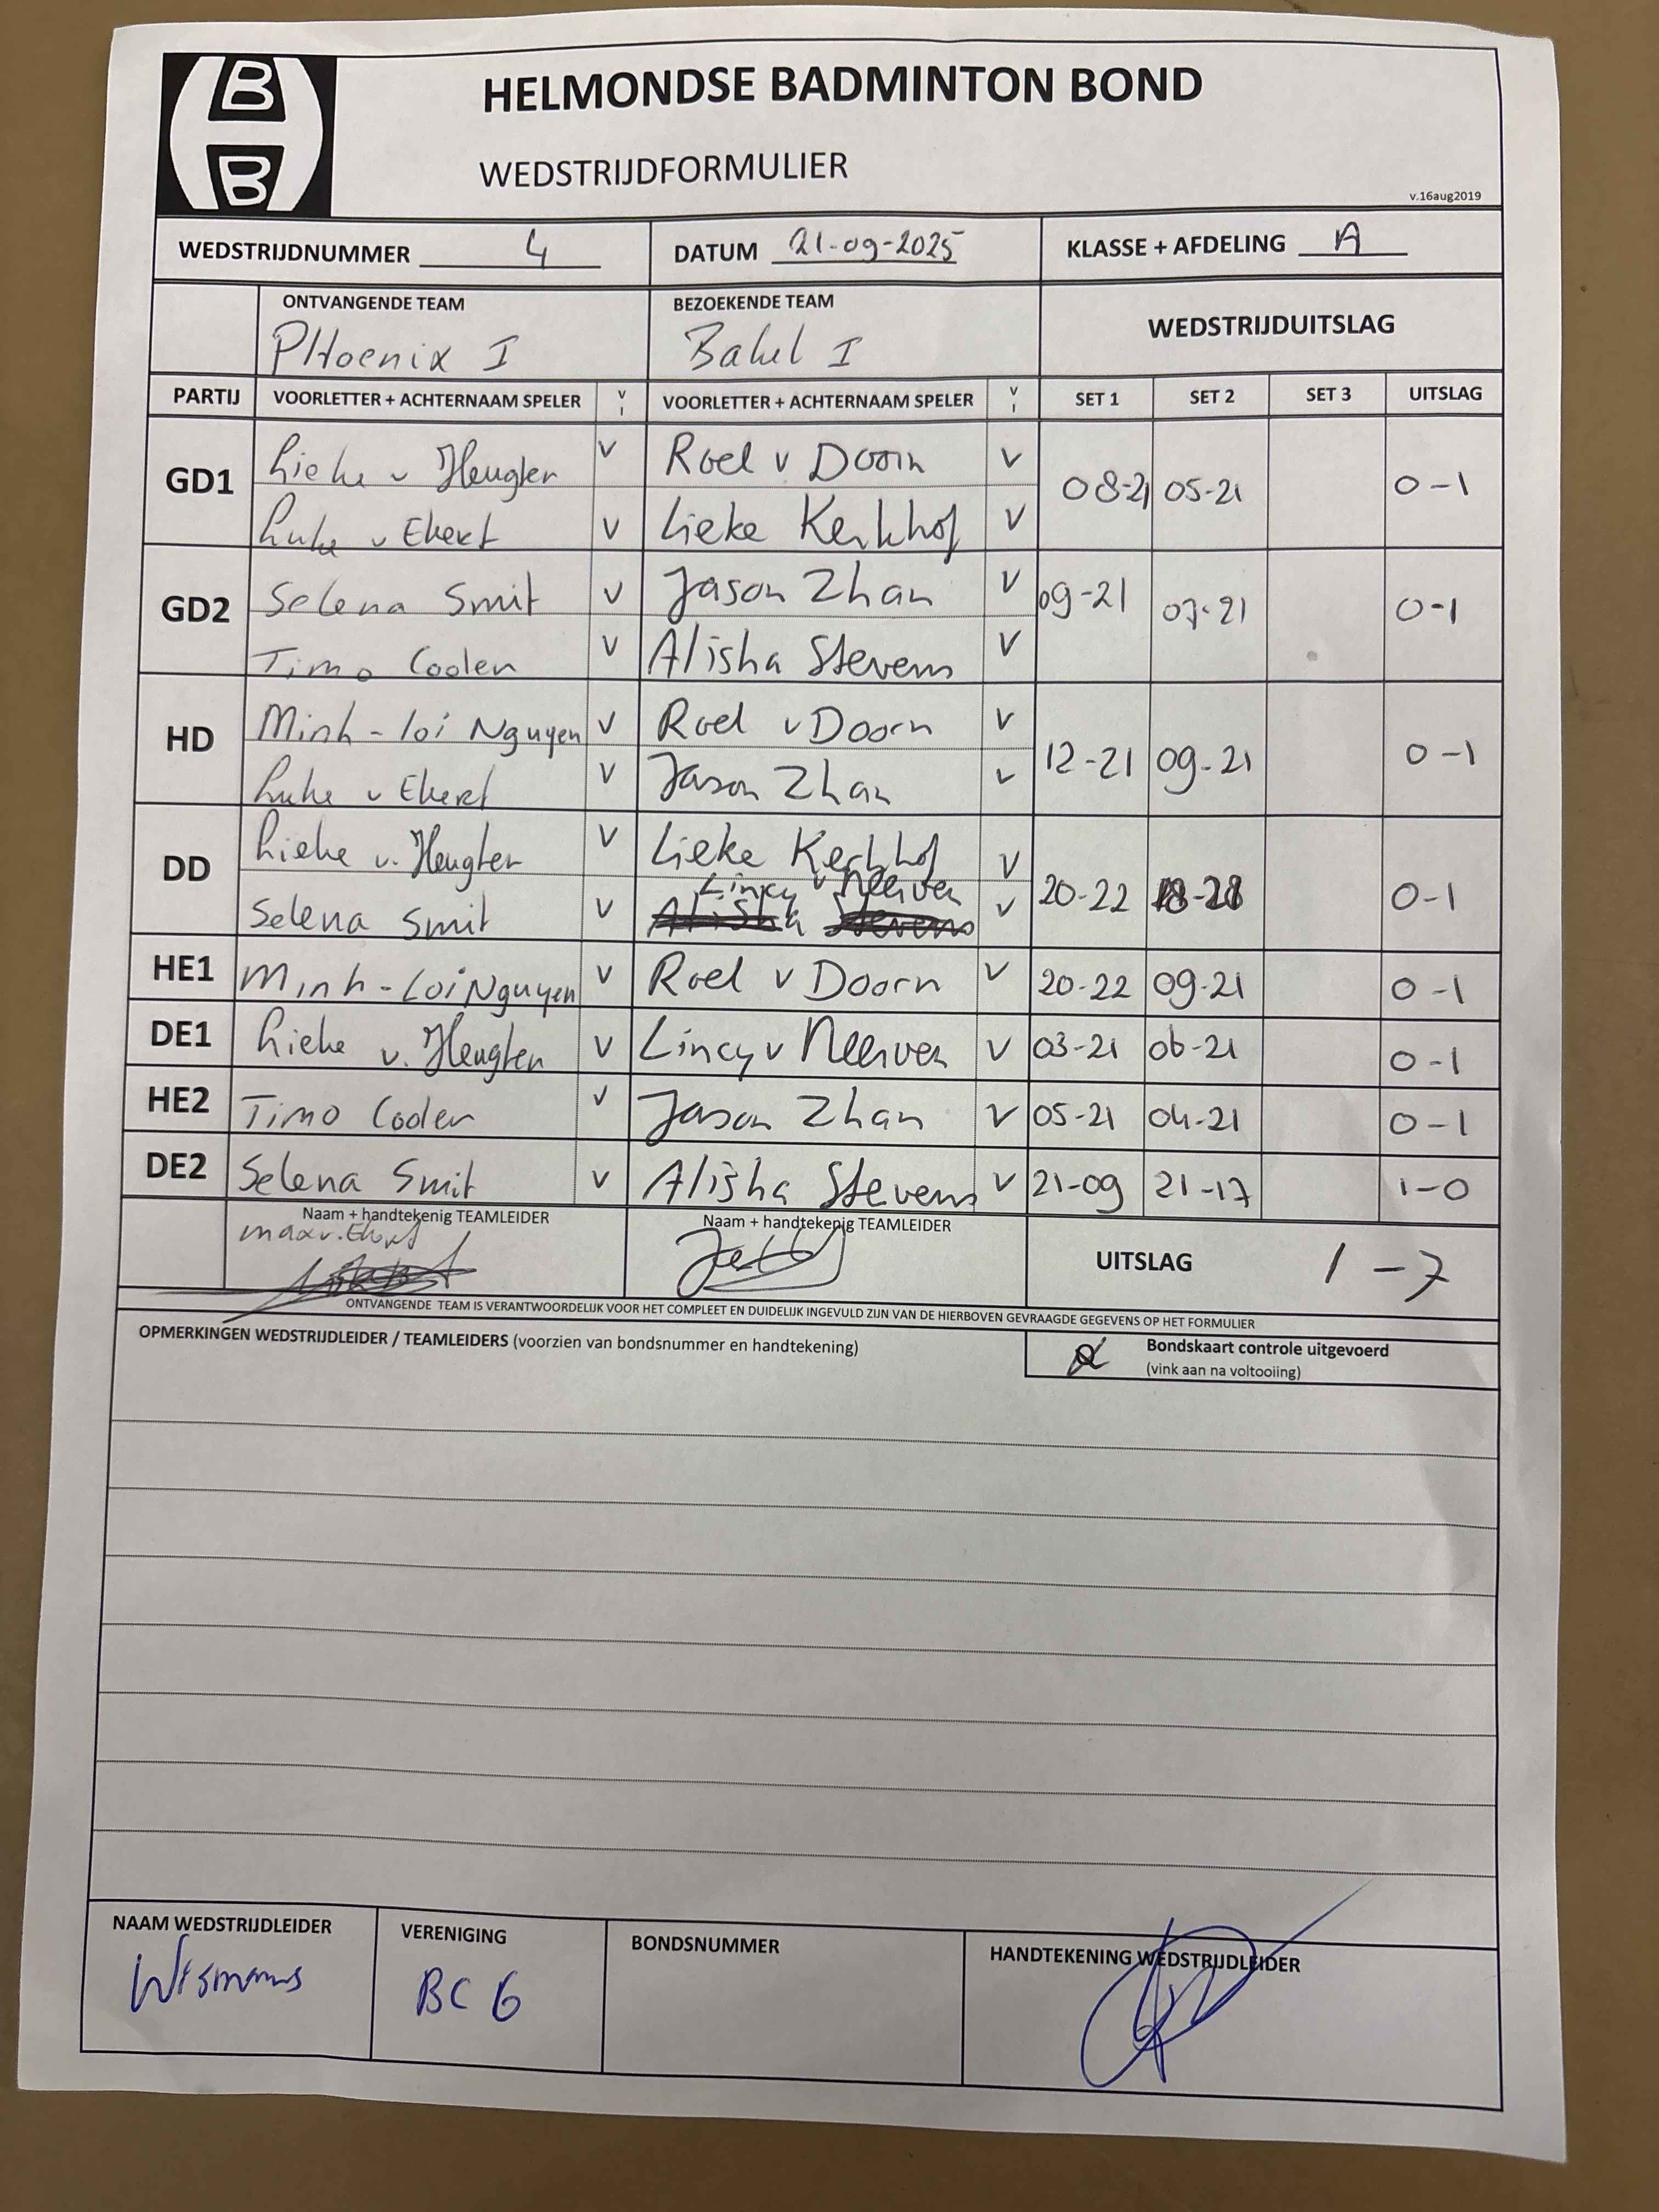 B
B
HELMONDSE BADMINTON BOND
WEDSTRIJDFORMULIER
v.16aug2019
WEDSTRIJDNUMMER 4 DATUM 21-09-2025 KLASSE + AFDELING A
ONTVANGENDE TEAM BEZOEKENDE TEAM WEDSTRIJDUITSLAG
PHoenix I Bakel I
PARTIJ VOORLETTER + ACHTERNAAM SPELER V VOORLETTER + ACHTERNAAM SPELER V SET 1 SET 2 SET 3 UITSLAG
GD1 Lieke v Heugten V Roel v Doorn V 08-21 05-21 0-1
Luke v Ekert V Lieke Kerkhof V
GD2 Selena Smit V Jason Zhan V 09-21 07-21 0-1
Timo Coolen V Alisha Stevens V
HD Minh-Loi Nguyen V Roel v Doorn V 12-21 09-21 0-1
Luke v Ekert V Jason Zhan V
DD Lieke v. Heugten V Lieke Kerkhof V 20-22 0-1
Lincy v Neerven
Selena Smit V Alisha Stevens V
HE1 Minh-Loi Nguyen V Roel v Doorn V 20-22 09-21 0-1
DE1 Lieke v. Heugten V Lincy v Neerven V 03-21 06-21 0-1
HE2 Timo Coolen V Jason Zhan V 05-21 04-21 0-1
DE2 Selena Smit V Alisha Stevens V 21-09 21-17 1-0
Naam + handtekenig TEAMLEIDER Naam + handtekenig TEAMLEIDER
max v. Ekert
UITSLAG 1-7
ONTVANGENDE TEAM IS VERANTWOORDELIJK VOOR HET COMPLEET EN DUIDELIJK INGEVULD ZIJN VAN DE HIERBOVEN GEVRAAGDE GEGEVENS OP HET FORMULIER
OPMERKINGEN WEDSTRIJDLEIDER / TEAMLEIDERS (voorzien van bondsnummer en handtekening)
Bondskaart controle uitgevoerd
(vink aan na voltooiing)
NAAM WEDSTRIJDLEIDER VERENIGING BONDSNUMMER HANDTEKENING WEDSTRIJDLEIDER
Wismans BC G